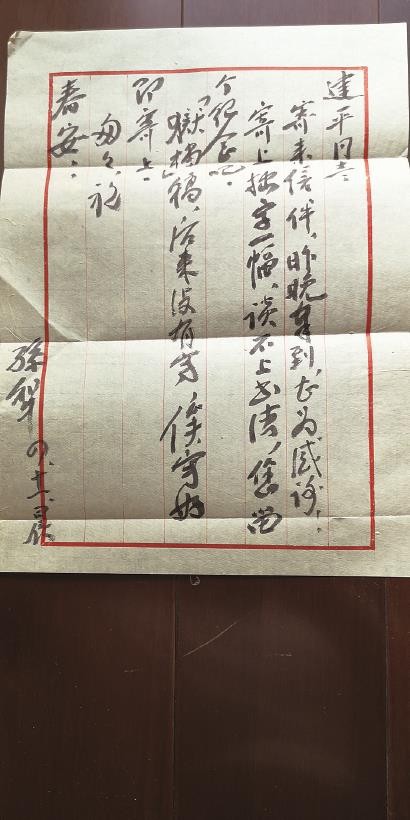 建平同志：
寄来信件，昨晚拿到，甚为感谢。
寄上拙字一幅，谈不上书法，您留
个纪念吧。
稿，后来没有写，俟写好
即寄上。
匆匆祝
春安！
孫犁